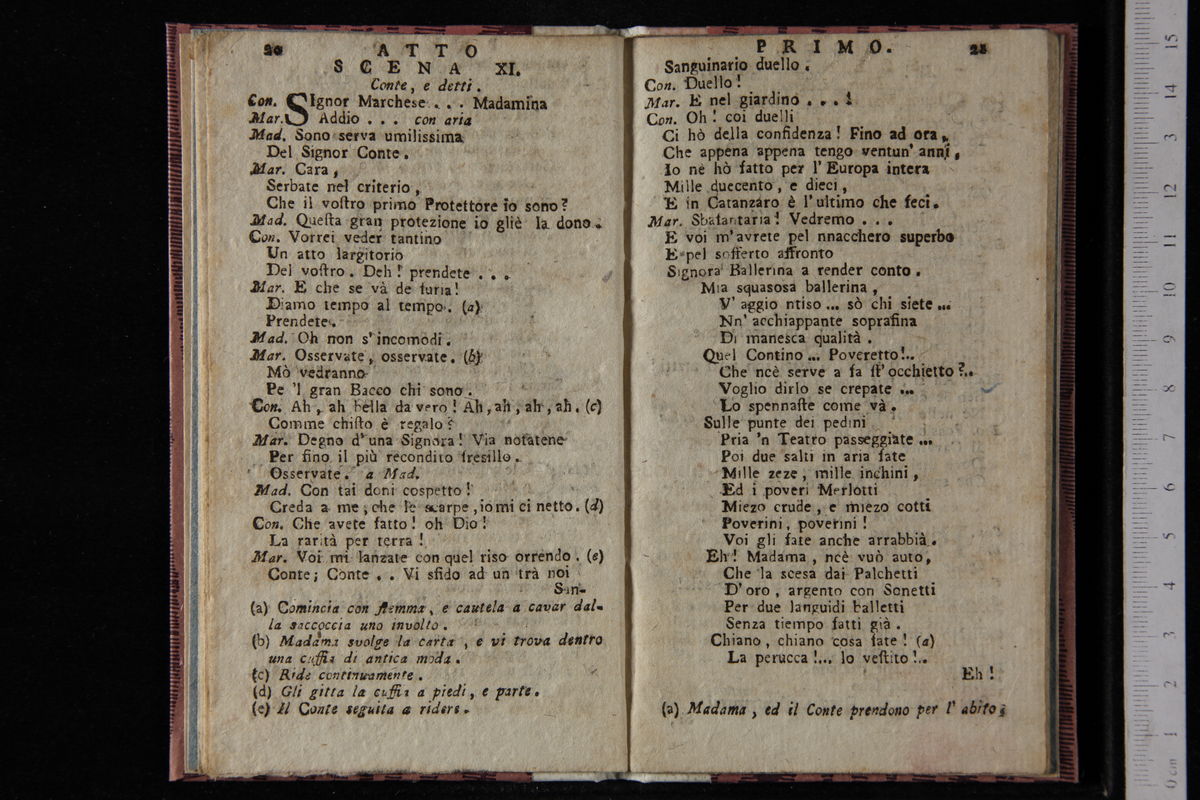 20
ATTO
SCENA XI.
Conte, e detti.
Con. SIgnor Marchese . . . Madamina
Mar. Addio . . . con aria
Mad. Sono serva umilissima
Del Signor Conte.
Mar. Cara,
Serbate nel criterio,
Che il vostro primo Protettore io sono?
Mad. Questa gran protezione io gliè la dono.
Con. Vorrei veder tantino
Un atto largitorio
Del vostro. Deh! prendete . . .
Mar. E che se và de furia!
Diamo tempo al tempo. (a)
Prendete.
Mad. Oh non s'incomodi.
Mar. Osservate, osservate. (b)
Mò vedranno
Pe 'l gran Bacco chi sono.
Con. Ah, ah bella da vero! Ah, ah, ah, ah. (c)
Comme chisto è regalo?
Mar. Degno d'una Signora! Via notatene
Per fino il più recondito fresillo.
Osservate. a Mad.
Mad. Con tai doni cospetto!
Creda a me, che le scarpe, io mi ci netto. (d)
Con. Che avete fatto! oh Dio!
La rarità per terra!
Mar. Voi mi lanzate con quel riso orrendo. (e)
Conte; Conte . . Vi sfido ad un trà noi
San-
(a) Comincia con flemma, e cautela a cavar dal-
la saccoccia uno involto.
(b) Madama svolge la carta, e vi trova dentro
una cuffia di antica moda.
(c) Ride continuamente.
(d) Gli gitta la cuffia a piedi, e parte.
(e) Il Conte seguita a ridere.
PRIMO.
21
Sanguinario duello.
Con. Duello!
Mar. E nel giardino . . . !
Con. Oh! coi duelli
Ci hò della confidenza! Fino ad ora,
Che appena appena tengo ventun' anni,
Io nè hò fatto per l'Europa intera
Mille duecento, e dieci,
E in Catanzaro è l'ultimo che feci.
Mar. Sbafantaria! Vedremo . . .
E voi m'avrete pel nnacchero superbo
E pel sofferto affronto
Signora Ballerina a render conto.
Mia squasosa ballerina,
V' aggio ntiso ... sò chi siete ...
Nn' acchiappante soprafina
Di manesca qualità.
Quel Contino ... Poveretto!..
Che ncè serve a fa st' occhietto?..
Voglio dirlo se crepate ...
Lo spennaste come và.
Sulle punte dei pedini
Pria 'n Teatro passeggiate ...
Poi due salti in aria fate
Mille zeze, mille inchini,
Ed i poveri Merlotti
Miezo crude, e miezo cotti
Poverini, poverini!
Voi gli fate anche arrabbià.
Eh! Madama, ncè vuò auto,
Che la scesa dai Palchetti
D'oro, argento con Sonetti
Per due languidi balletti
Senza tiempo fatti già.
Chiano, chiano cosa fate! (a)
La perucca!... lo vestito!..
Eh!
(a) Madama, ed il Conte prendono per l'abito;